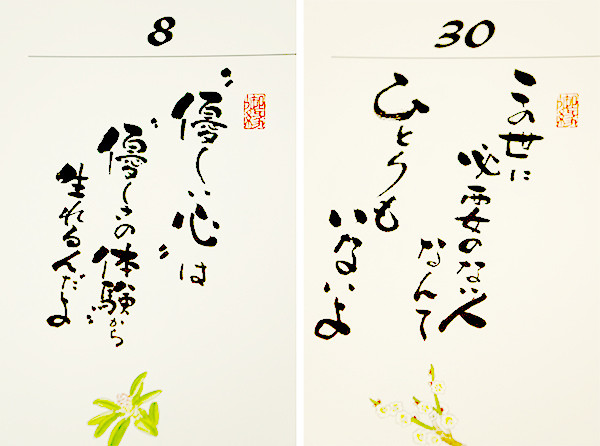 8
〝優しい心〟は
〝優しさの体験〟から
生れるんだよ
30
この世に
必要のない人
なんて
ひとりも
いないよ